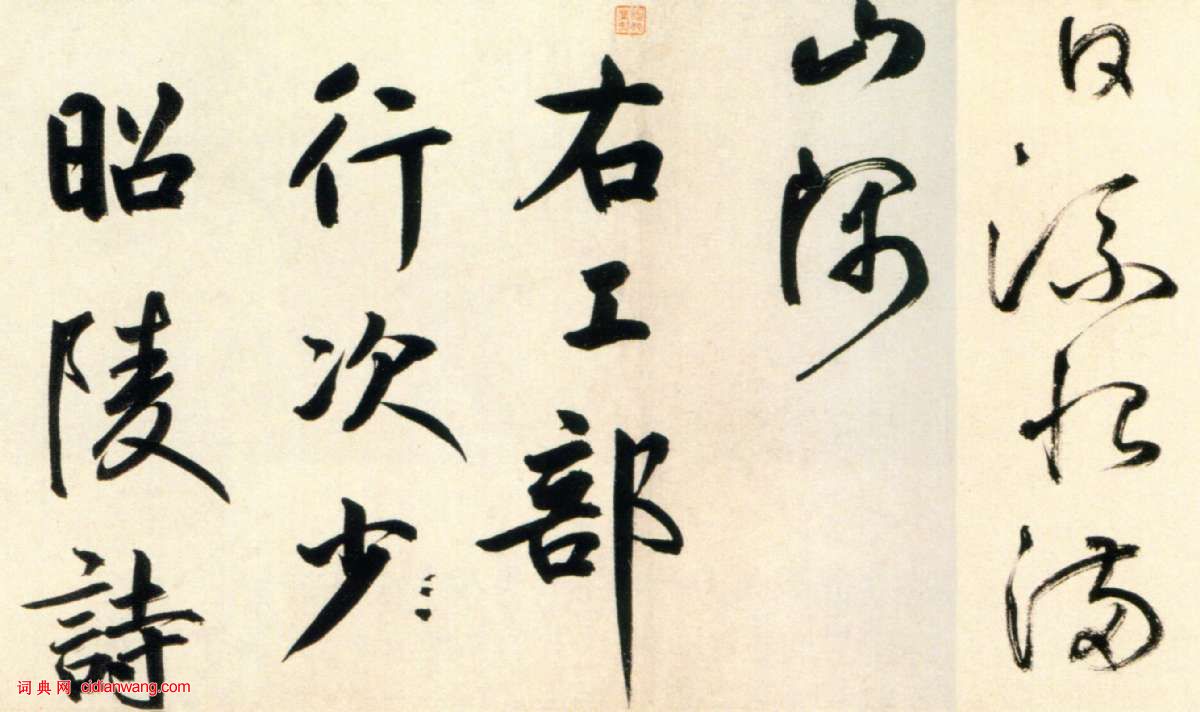 日流恨滿
山隅
右工部
行次少
昭陵詩
词典网 cidianwang.com